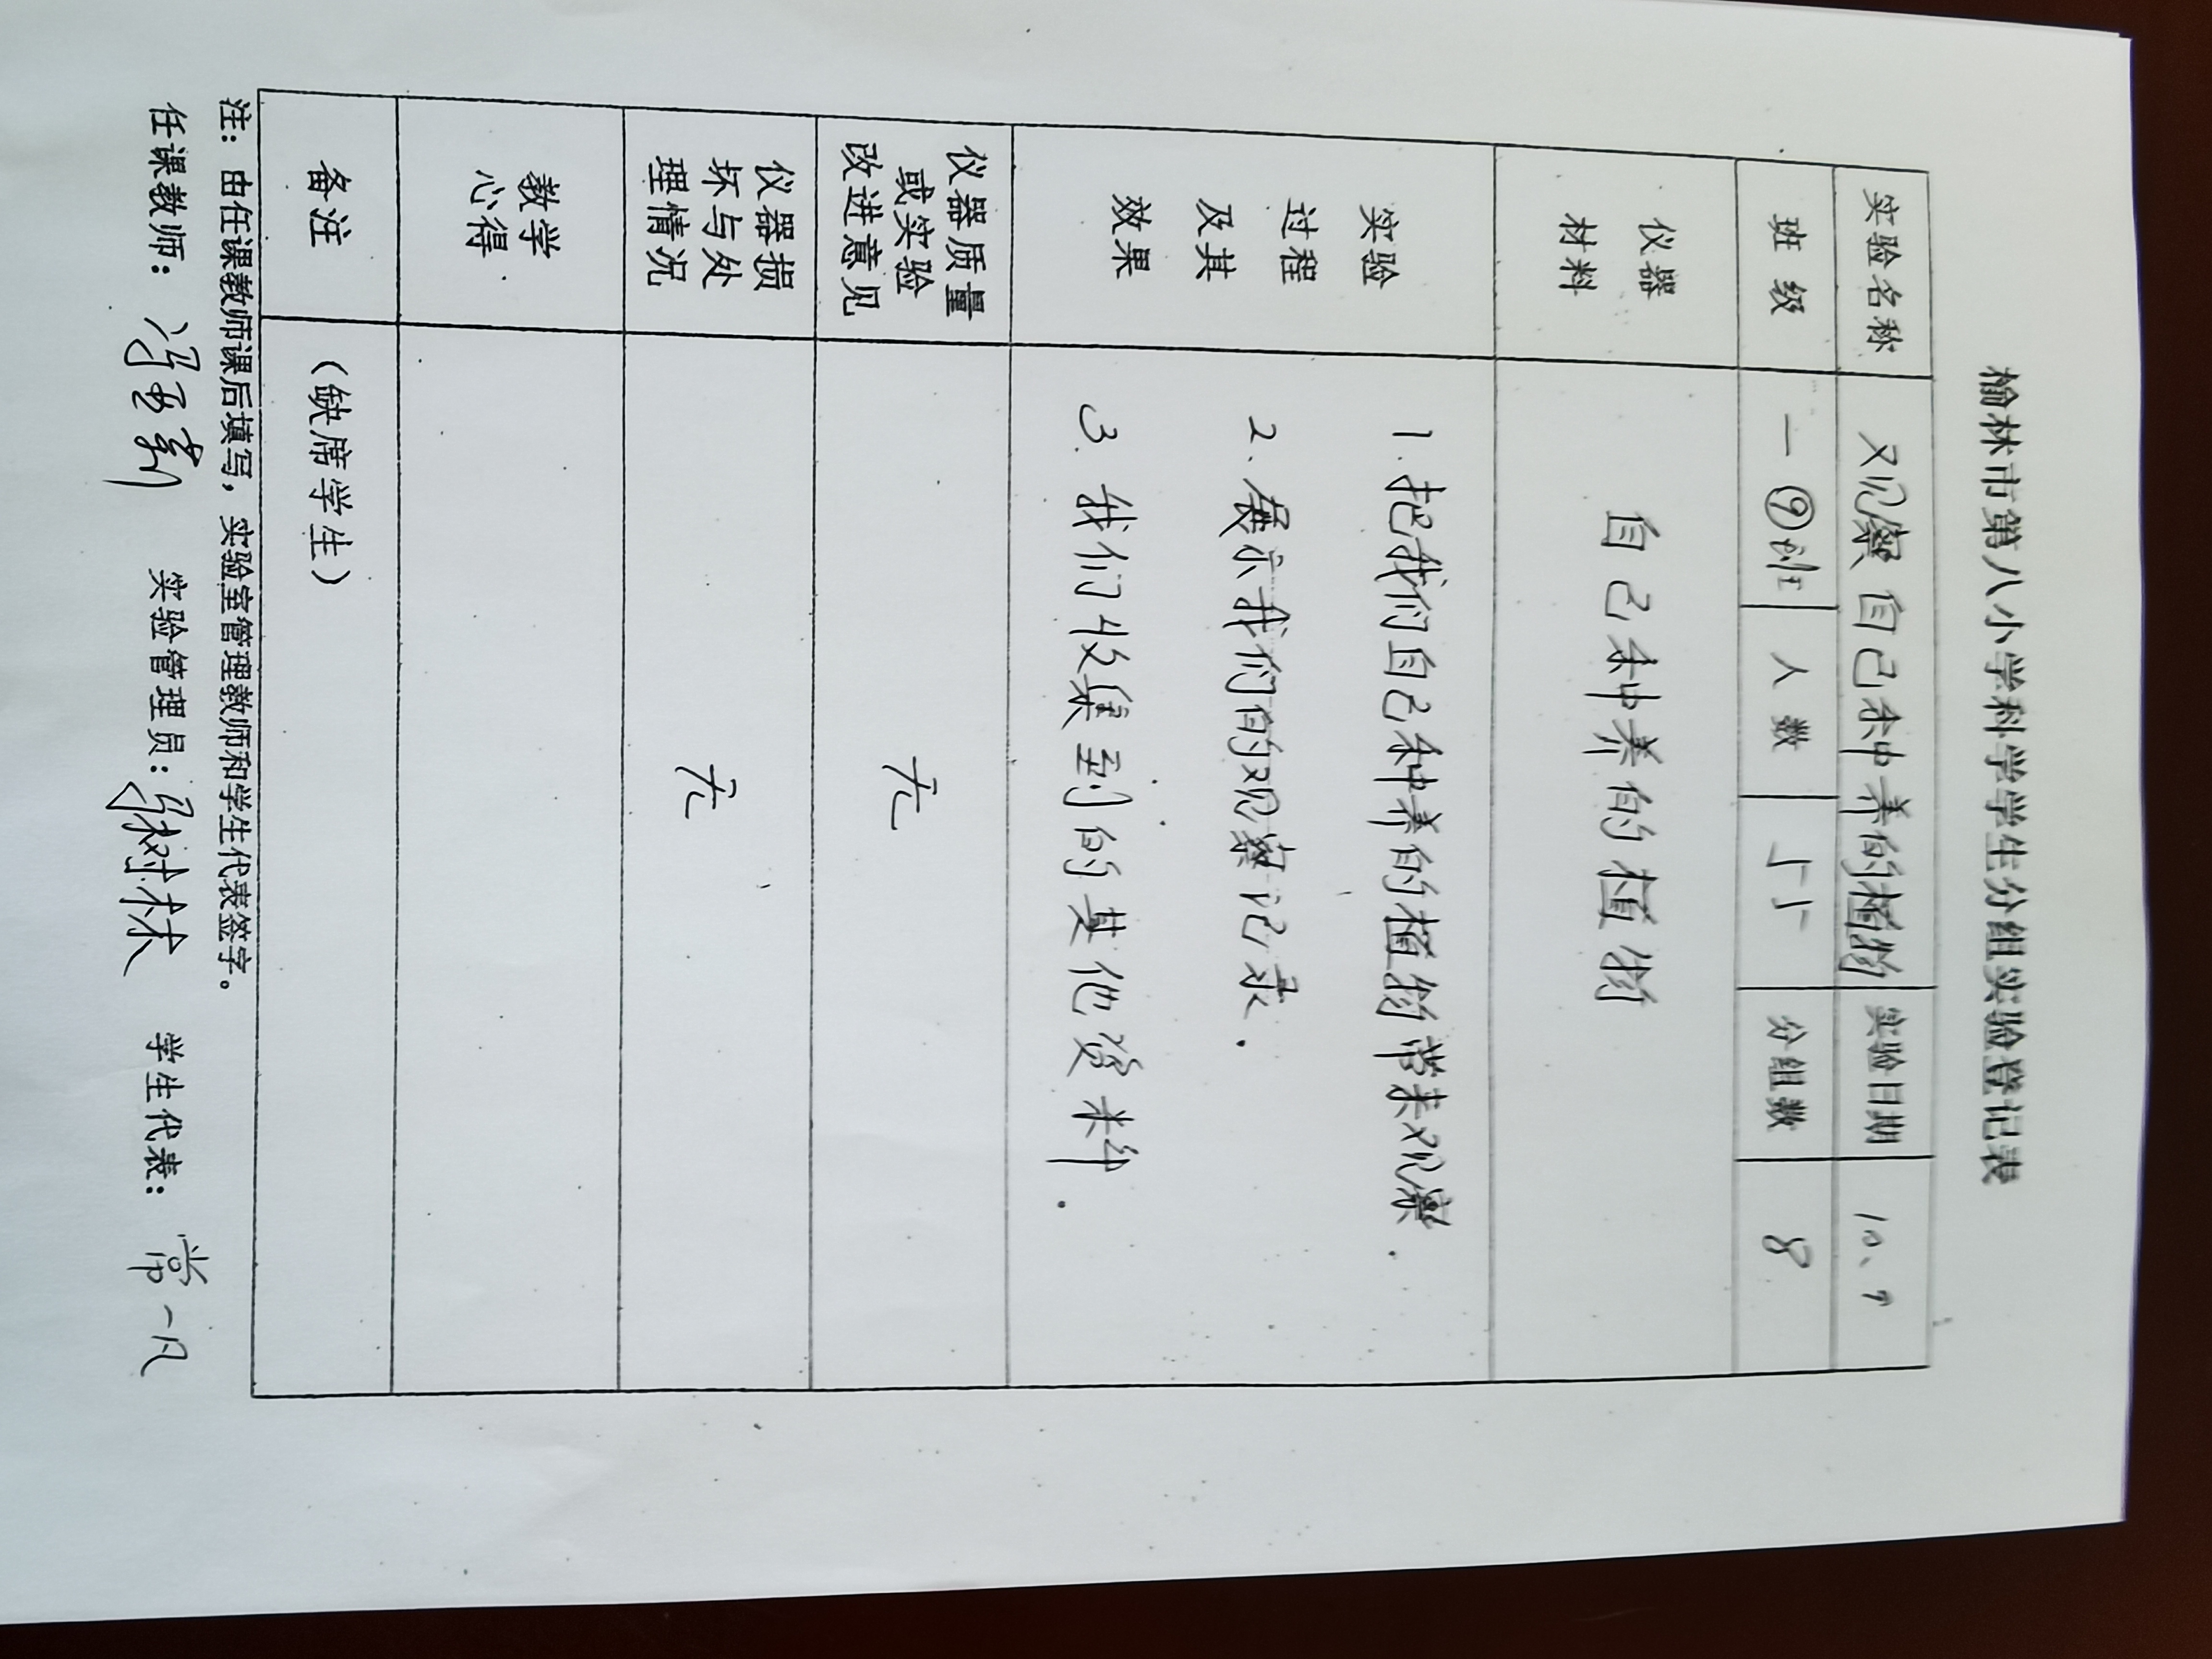 榆林市第八小学科学学生分组实验登记表
实验名称 观察自己种养的植物 实验日期 10、9
班级 一⑨班 人数 55 分组数 8
仪器
材料
自己种养的植物
实验
过程
及其
效果
1.把我们自己种养的植物带来观察.
2.展示我们的观察记录.
3.我们收集到的其他资料.
仪器质量
或实验
改进意见
无
仪器损
坏与处
理情况
无
教学
心得
备注
(缺席学生)
注:由任课教师课后填写,实验室管理教师和学生代表签字。
任课教师: 实验管理员: 学生代表:常一凡